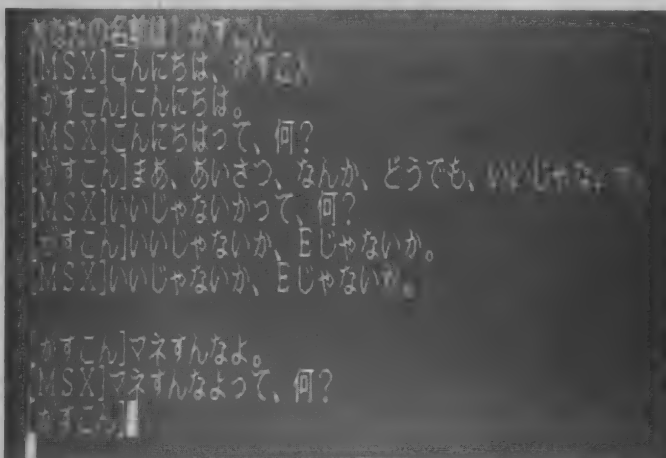 あなたの名前は? かすこん
[MSX]こんにちは、かすこん
[かすこん]こんにちは。
[MSX]こんにちはって、何?
[かすこん]まあ、あいさつ、なんか、どうでも、いいじゃない
[MSX]いいじゃないかって、何?
[かすこん]いいじゃないか、Eじゃないか。
[MSX]いいじゃないか、Eじゃないか。
[かすこん]マネすんなよ。
[MSX]マネすんなよって、何?
[かすこん]